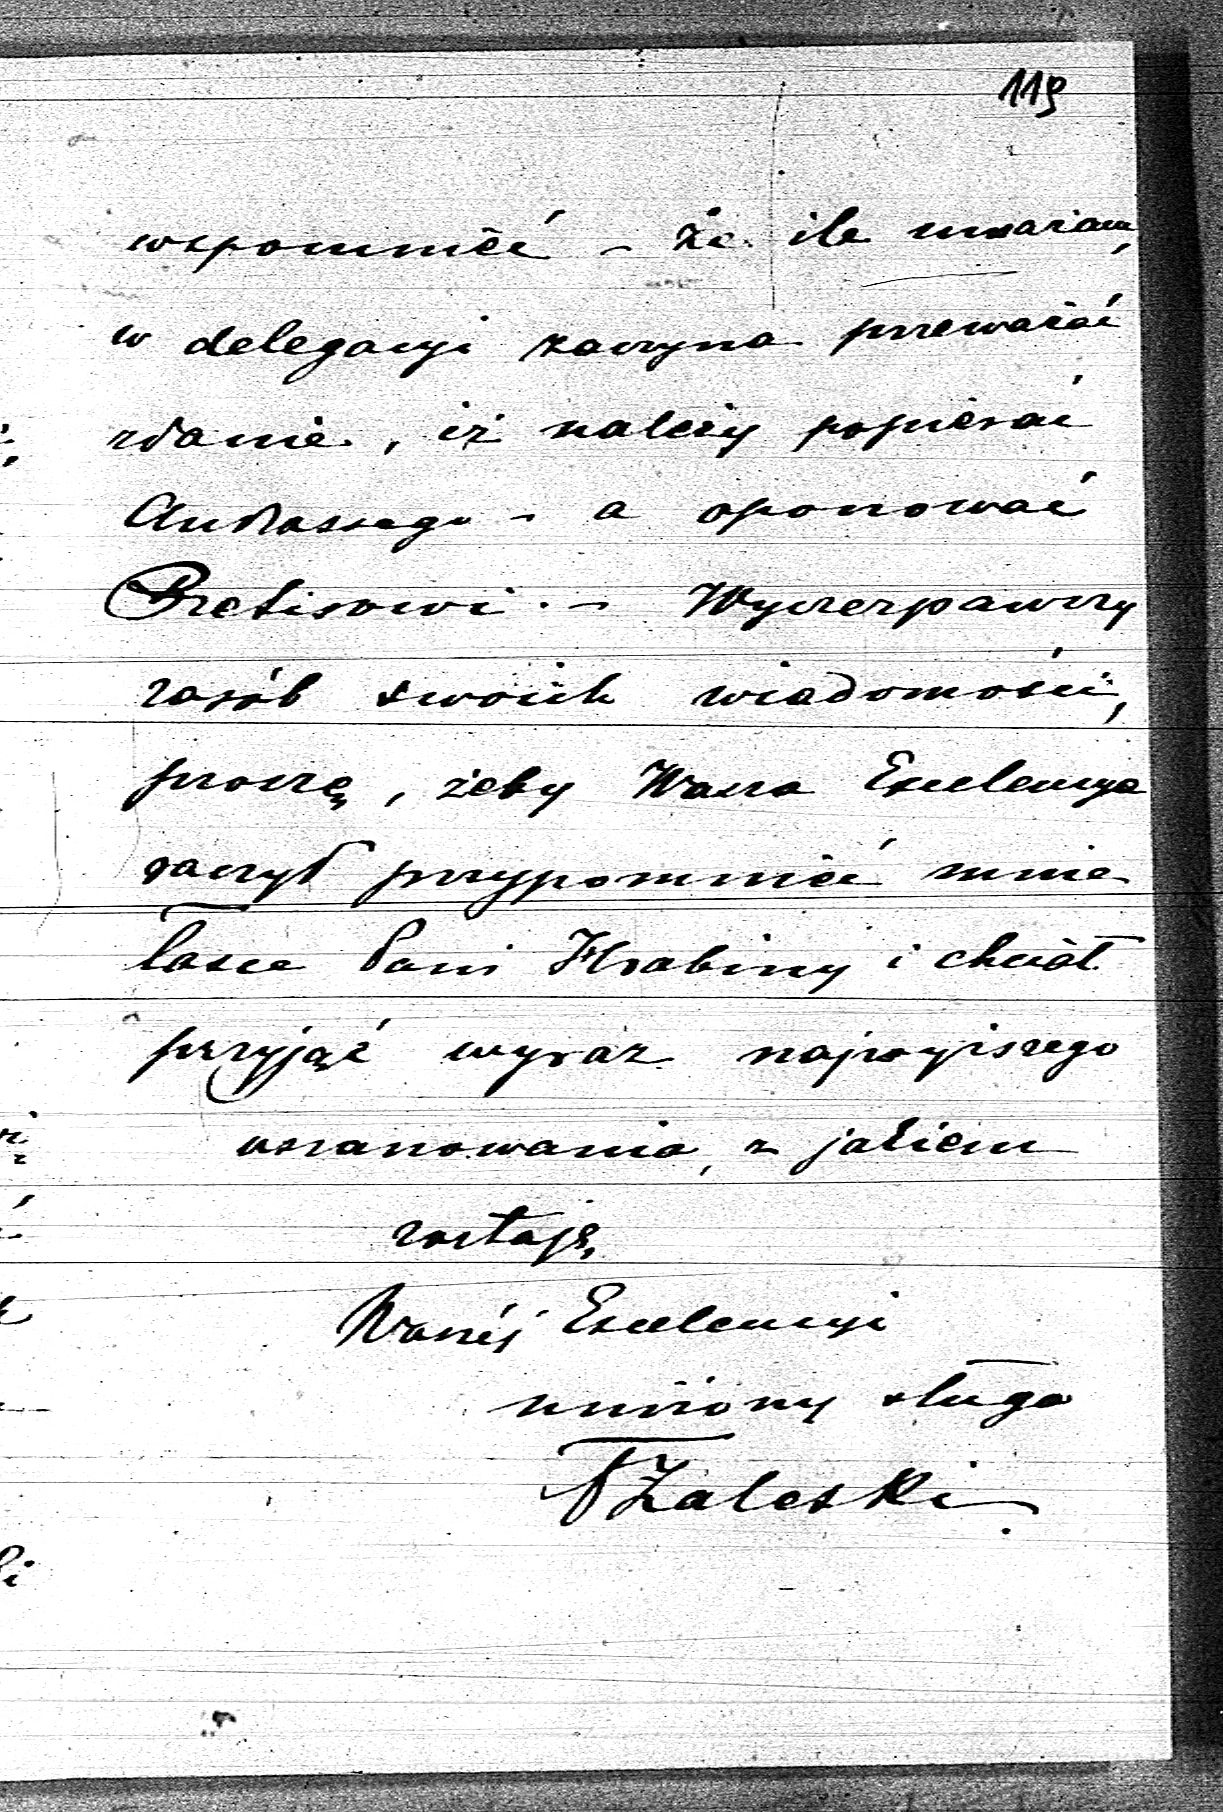 119
wspomnieć – że ile uważam,
w delegacyi zaczyna przeważać
zdanie, iż należy popierać
Andrassego – a oponować
Pretisowi. – Wyczerpawszy
zasób swoich wiadomości,
proszę, żeby Wasza Excelencya
raczył przypomnieć mnie
łasce Pani Hrabiny i chciał
przyjąć wyraz najwyższego
uszanowania, z jakiem
zostaję,
Waszéj Excelencyi
uniżony sługa
FZaleski